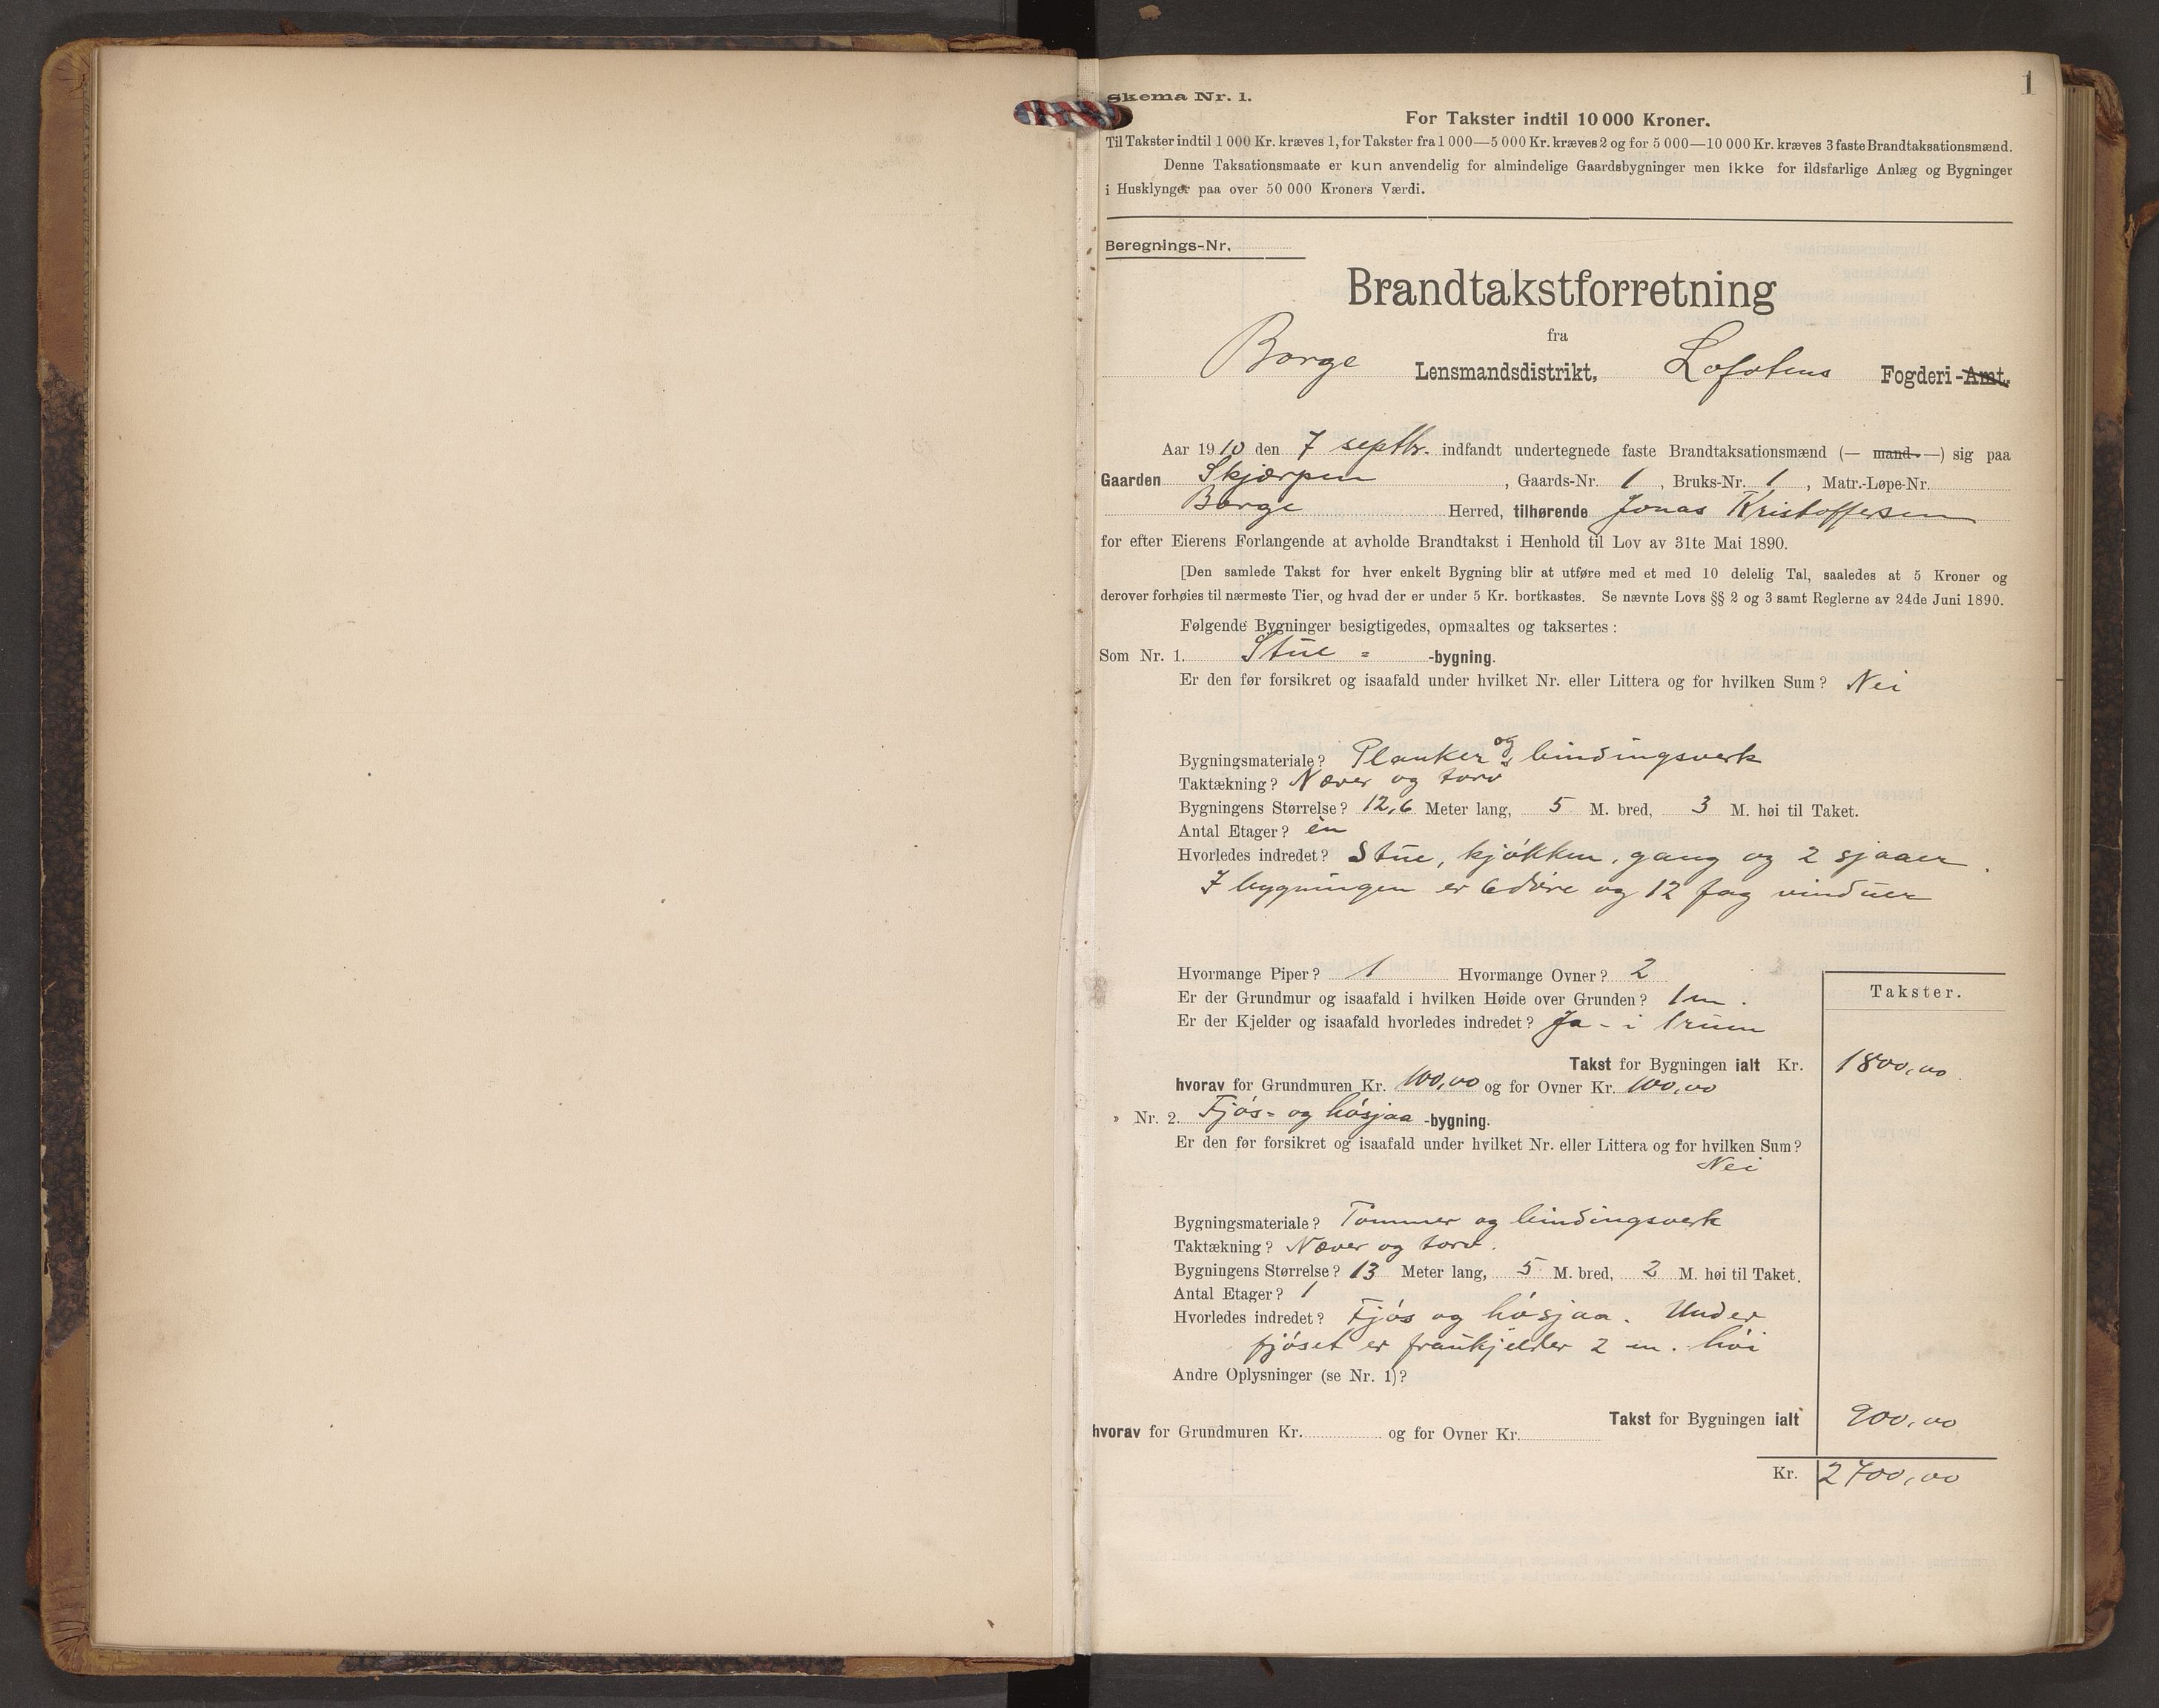 1
Skema Nr. 1.
For Takster indtil 10 000 Kroner.
Til Takster indtil 1 000 Kr. kræves 1, for Takster fra 1 000—5 000 Kr. kræves 2 og for 5 000—10 000 Kr. kræves 3 faste Brandtaksationsmænd.
Denne Taksationsmaate er kun anvendelig for almindelige Gaardsbygninger men ikke for ildsfarlige Anlæg og Bygninger
i Husklynger paa over 50 000 Kroners Værdi.
Beregnings-Nr.
Brandtakstforretning
fra
Borge Lensmandsdistrikt, Lofotens Fogderi-Amt.
Aar 1910 den 7 septbr. indfandt undertegnede faste Brandtaksationsmænd (— mand. —) sig paa
Gaarden Skjærpen, Gaards-Nr. 1, Bruks-Nr. 1, Matr.-Løpe-Nr.
Borge Herred, tilhørende Jonas Kristoffersen
for efter Eierens Forlangende at avholde Brandtakst i Henhold til Lov av 31te Mai 1890.
[Den samlede Takst for hver enkelt Bygning blir at utføre med et med 10 delelig Tal, saaledes at 5 Kroner og
derover forhøies til nærmeste Tier, og hvad der er under 5 Kr. bortkastes. Se nævnte Lovs §§ 2 og 3 samt Reglerne av 24de Juni 1890.
Følgende Bygninger besigtigedes, opmaaltes og taksertes:
Som Nr. 1. Stue = -bygning.
Er den før forsikret og isaafald under hvilket Nr. eller Littera og for hvilken Sum? Nei
Bygningsmateriale? Planker og bindingsverk
Taktækning? Næver og torv
Bygningens Størrelse? 12,6 Meter lang, 5 M. bred, 3 M. høi til Taket.
Antal Etager? èn
Hvorledes indredet? Stue, kjøkken, gang og 2 sjaaer.
I bygningen er 6 døre og 12 fag vinduer
Hvormange Piper? 1 Hvormange Ovner? 2
Er der Grundmur og isaafald i hvilken Høide over Grunden? 1 m.
Er der Kjelder og isaafald hvorledes indredet? Ja - i 1 rum
Takster.
Takst for Bygningen ialt Kr. 1800,00
hvorav for Grundmuren Kr. 100,00 og for Ovner Kr. 100,00
» Nr. 2. Fjøs- og høsjaa -bygning.
Er den før forsikret og isaafald under hvilket Nr. eller Littera og for hvilken Sum?
Nei
Bygningsmateriale? Tømmer og bindingsverk
Taktækning? Næver og torv.
Bygningens Størrelse? 13 Meter lang, 5 M. bred, 2 M. høi til Taket.
Antal Etager? 1
Hvorledes indredet? Fjøs og høsjaa. Under
fjøset er fraukjelder 2 m. høi
Andre Oplysninger (se Nr. 1)?
Takst for Bygningen ialt 900,00
hvorav for Grundmuren Kr. og for Ovner Kr.
Kr. 2700,00